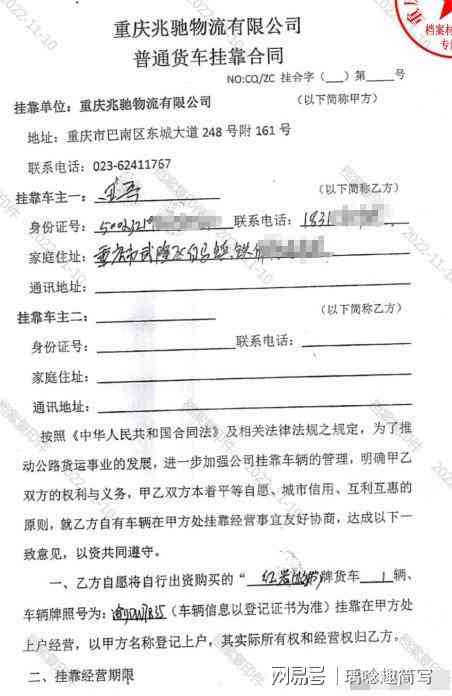 重庆兆驰物流有限公司
普通货车挂靠合同
NO:CQ/ZC 挂合字（ ）第 号
挂靠单位：重庆兆驰物流有限公司 （以下简称甲方）
地址：重庆市巴南区东城大道 248 号附 161 号
联系电话：023-62411767
挂靠车主一： （以下简称乙方）
身份证号：50023219 联系电话：1831
家庭住址：重庆市武隆区白马镇铁
通讯地址：
挂靠车主二： （以下简称乙方）
身份证号： 联系电话：
家庭住址：
通讯地址：
按照《中华人民共和国合同法》及相关法律法规之规定，为了推
动公路货运事业的发展，进一步加强公司挂靠车辆的管理，明确甲乙
双方的权利与义务，甲乙双方本着平等自愿、城市信用、互利互惠的
原则，就乙方自有车辆在甲方处挂靠经营事宜友好协商，达成以下一
致意见，以资共同遵守。
一、乙方自愿将自行出资购买的“ 红岩 牌货车 1 辆、
车辆牌照号为： （车辆信息以登记证书为准）挂靠在甲方处
上户经营，以甲方名称登记上户，其实际所有权和经营权归乙方。
二、挂靠经营期限
档案材
专用
档案复印件
2022-11-10
网易号 | 瑀晗趣简写